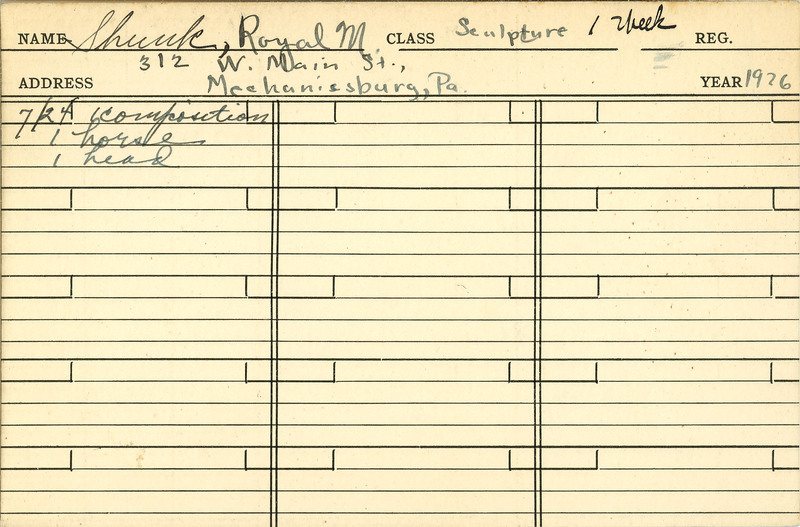 NAME Shunk, Royal M. CLASS Sculpture 1 Week REG.
312 W. Main St.,
ADDRESS Mechanicsburg, Pa. YEAR 1926
7/24 1 composition
1 horse
1 head